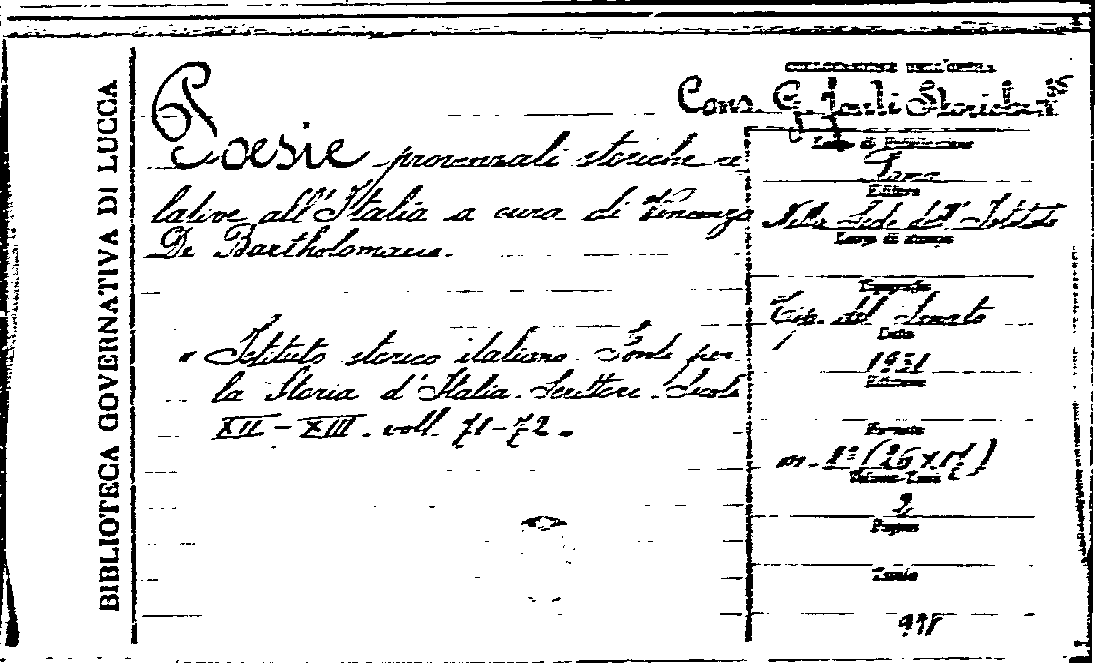 BIBLIOTECA GOVERNATIVA DI LUCCA
COLLOCAZIONE DELL'OPERA
Cons. G. Fonti Storiche
Poesie provenzali storiche re
lative all'Italia a cura di Vincenzo
De Bartholomaeis.
"Istituto storico italiano. Fonti per
la Storia d'Italia. Scrittori. Secoli
XII-XIII. voll. 71-72.
Luogo di Pubblicazione
Roma
Editore
Nella Sede dell'Istituto
Luogo di stampa
Tipografia
Tip. del Senato
Data
1931
Edizione
Formato
in-8º (26x17)
Volume
2
Pagine
Tavole